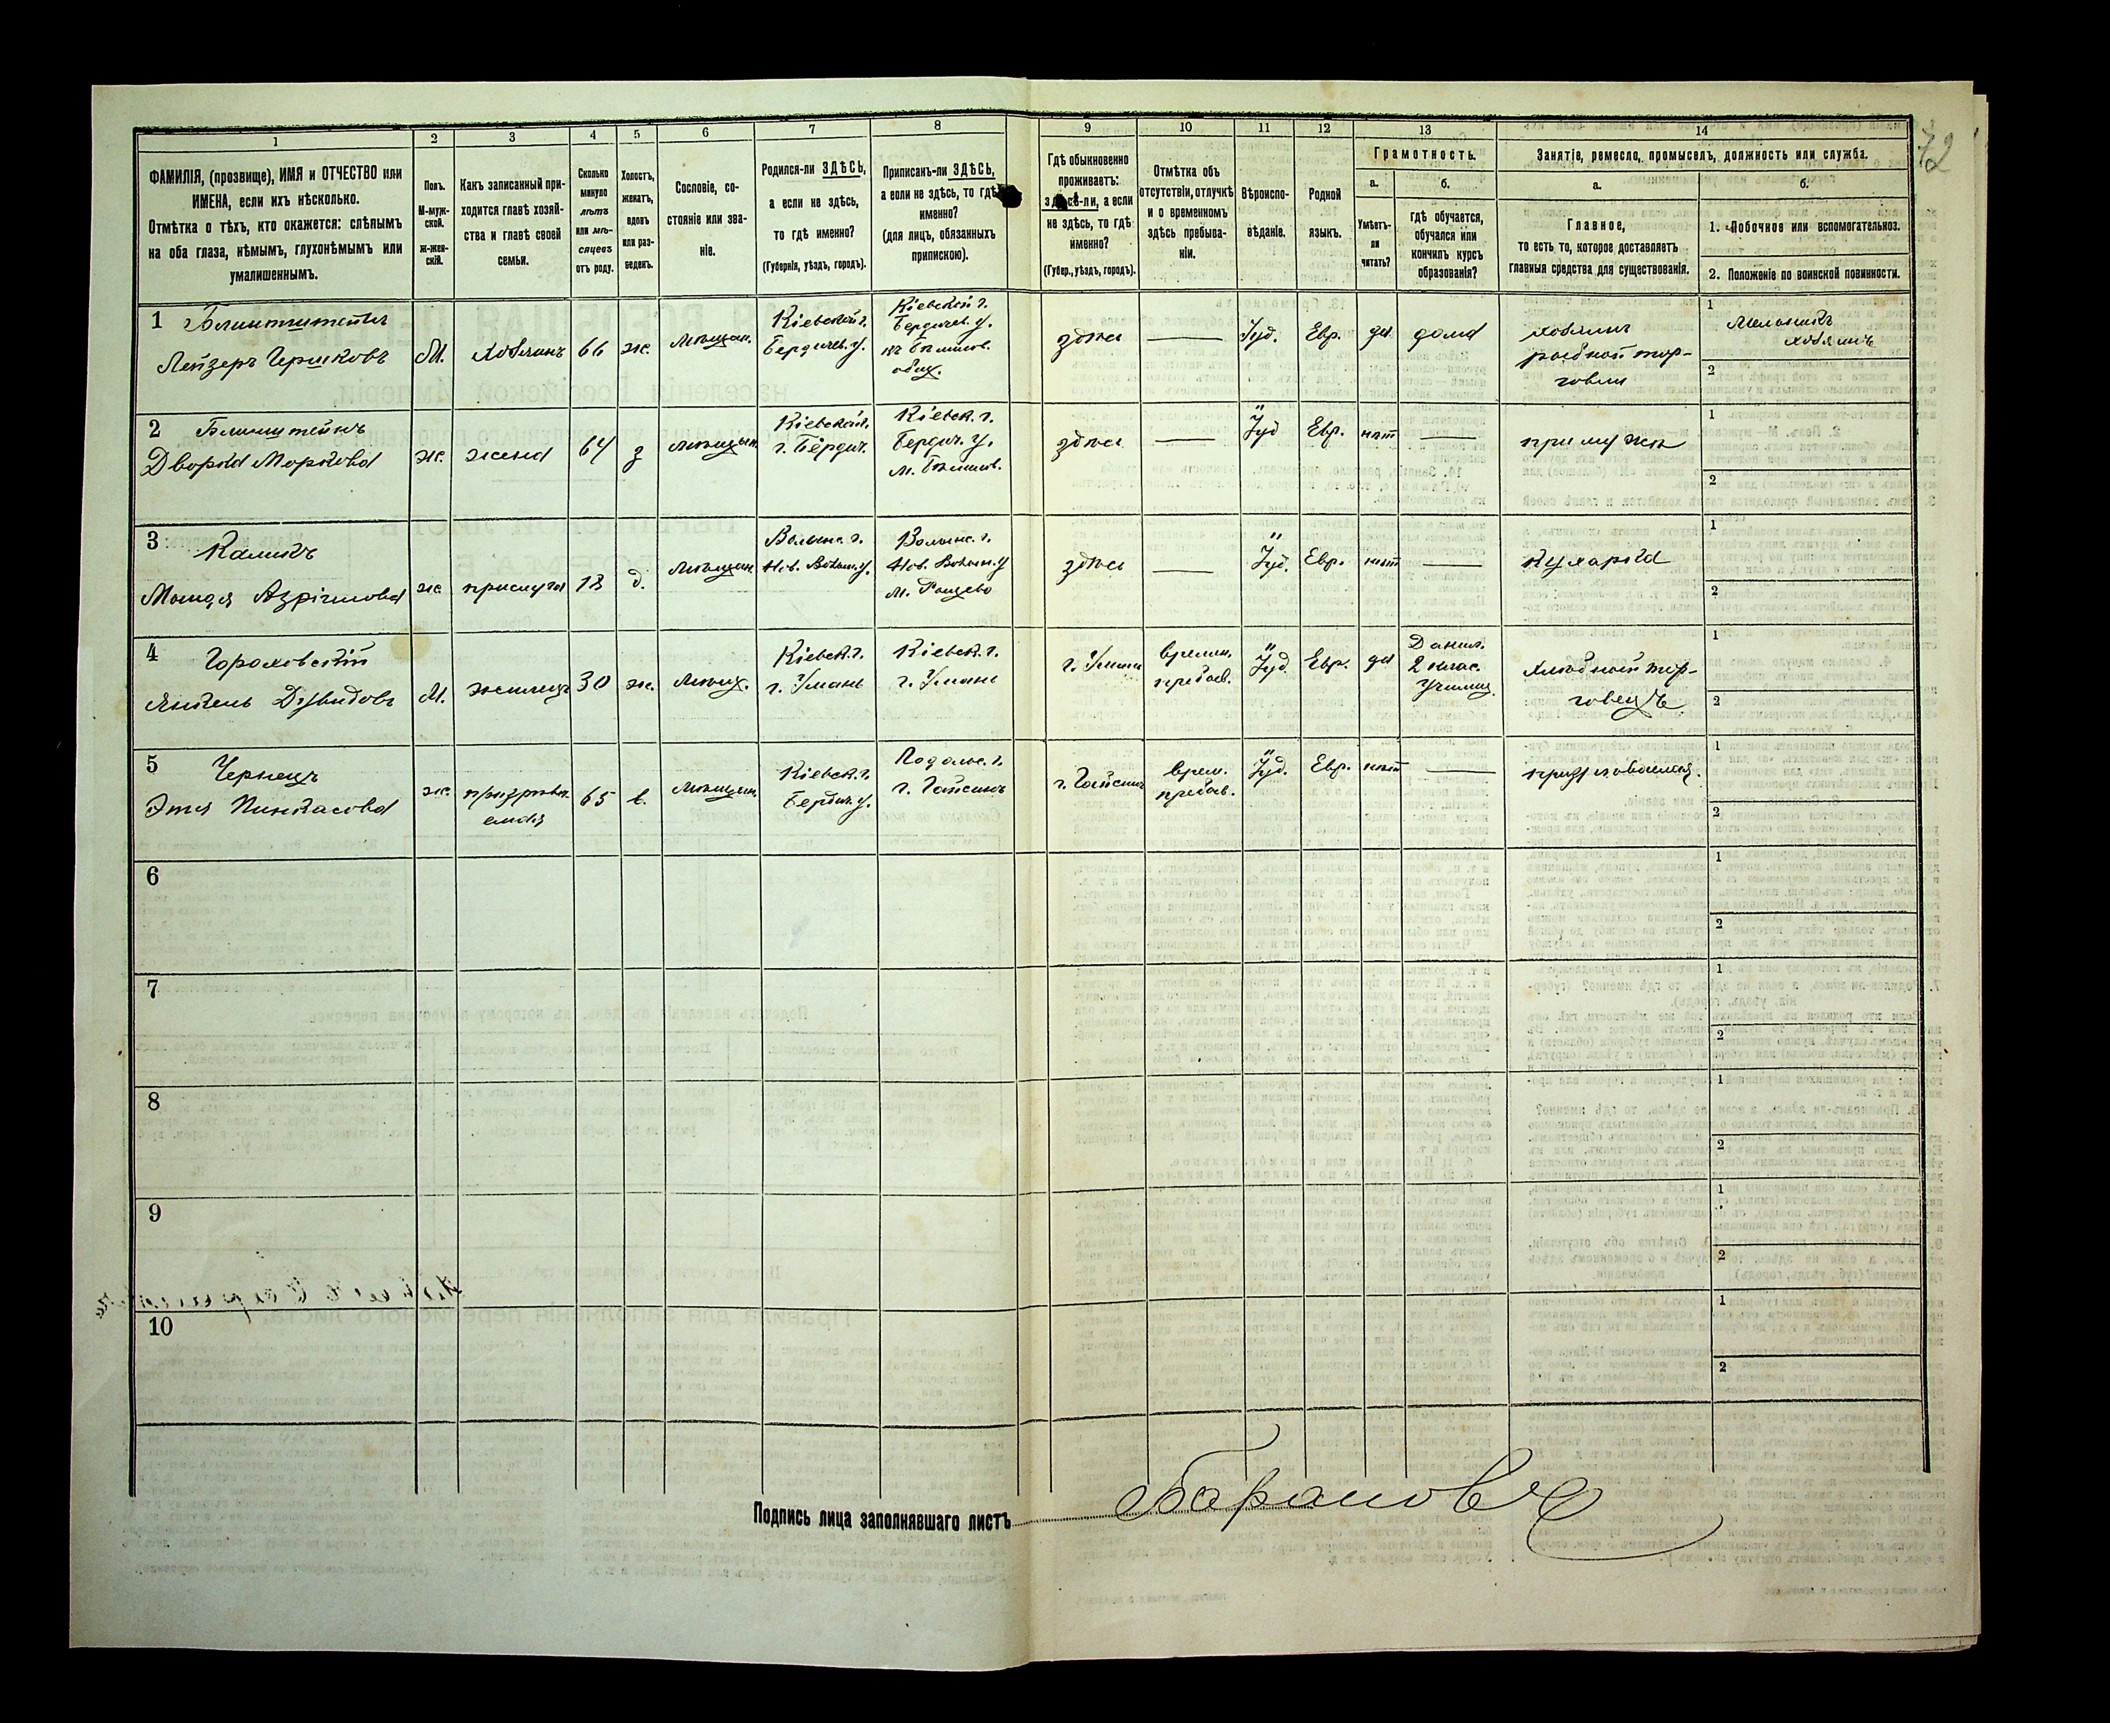 72
1
2
3
4
5
6
7
8
9
10
11
12
13
14
ФАМИЛІЯ, (прозвище), ИМЯ и ОТЧЕСТВО или
ИМЕНА, если ихъ нѣсколько.
Отмѣтка о тѣхъ, кто окажется: слѣпымъ
на оба глаза, нѣмымъ, глухонѣмымъ или
умалишеннымъ.
Полъ.
М-муж-
ской.
Ж-жен-
скій.
Какъ записанный при-
ходится главѣ хозяй-
ства и главѣ своей
семьи.
Сколько
минуло
лѣтъ
или мѣ-
сяцевъ
отъ роду.
Холостъ,
женатъ,
вдовъ
или раз-
веденъ.
Сословіе, со-
стояніе или зва-
ніе.
Родился-ли ЗДѢСЬ,
а если не здѣсь,
то гдѣ именно?
(Губернія, уѣздъ, городъ).
Приписанъ-ли ЗДѢСЬ,
а если не здѣсь, то гдѣ
именно?
(для лицъ, обязанныхъ
припискою).
Гдѣ обыкновенно
проживаетъ:
здѣсь-ли, а если
не здѣсь, то гдѣ
именно?
(Губер., уѣздъ, городъ).
Отмѣтка объ
отсутствіи, отлучкѣ
и о временномъ
здѣсь пребыва-
ніи.
Вѣроиспо-
вѣданіе.
Родной
языкъ.
Грамотность.
а.
Умѣетъ-
ли
читать?
б.
гдѣ обучается,
обучался или
кончилъ курсъ
образованія?
Занятіе, ремесло, промыселъ, должность или служба.
а.
Главное,
то есть то, которое доставляетъ
главныя средства для существованія.
б.
1. Побочное или вспомогательное.
2. Положеніе по воинской повинности.
1
Лейзеръ Гершковъ
М.
хозяинъ
66
ж.
мѣщан.
Кіевской г.
Бердичев. у.
Кіевской г.
Бердичев. у.
общ.
здѣсь
Іуд.
Евр.
да
дома
хозяинъ
рыбной тор-
говли
1
2
2 Блинштейнъ
Дворка Моркова
ж.
жена
64
з
мѣщан.
Кіевской
г. Бердич.
Кіевск. г.
Бердич. у.
здѣсь
Іуд
Евр.
нѣт
при мужѣ
1
2
3
Азріилова
ж.
прислуга
18
д.
мѣщан.
Волынс. г.
Нов. Волын. у.
Волынс. г.
Нов. Волын. у
здѣсь
Іуд.
Евр.
нѣт
кухарка
1
2
4 Гороховскій
Янкель Дувидовъ
М.
жилецъ
30
ж.
мѣщ.
Кіевск. г.
г. Умань
Кіевск. г.
г. Умань
г. Умань
времен.
пребыв.
Іуд
Евр.
да
2 клас.
Училищ.
хлѣбной тор-
говецъ
1
2
5 Чернецъ
Этя Пинкасова
ж.
призрѣва-
емая
65
в.
мѣщан.
Кіевск. г.
Бердич. у.
Подольс. г.
г. Гайсинъ
г. Гайсинъ
врем.
пребыв.
Іуд.
Евр.
нѣт
призрѣваемая.
1
2
6
1
2
7
1
2
8
1
2
9
1
2
10
1
2
Подпись лица заполнявшаго листъ
Барановъ